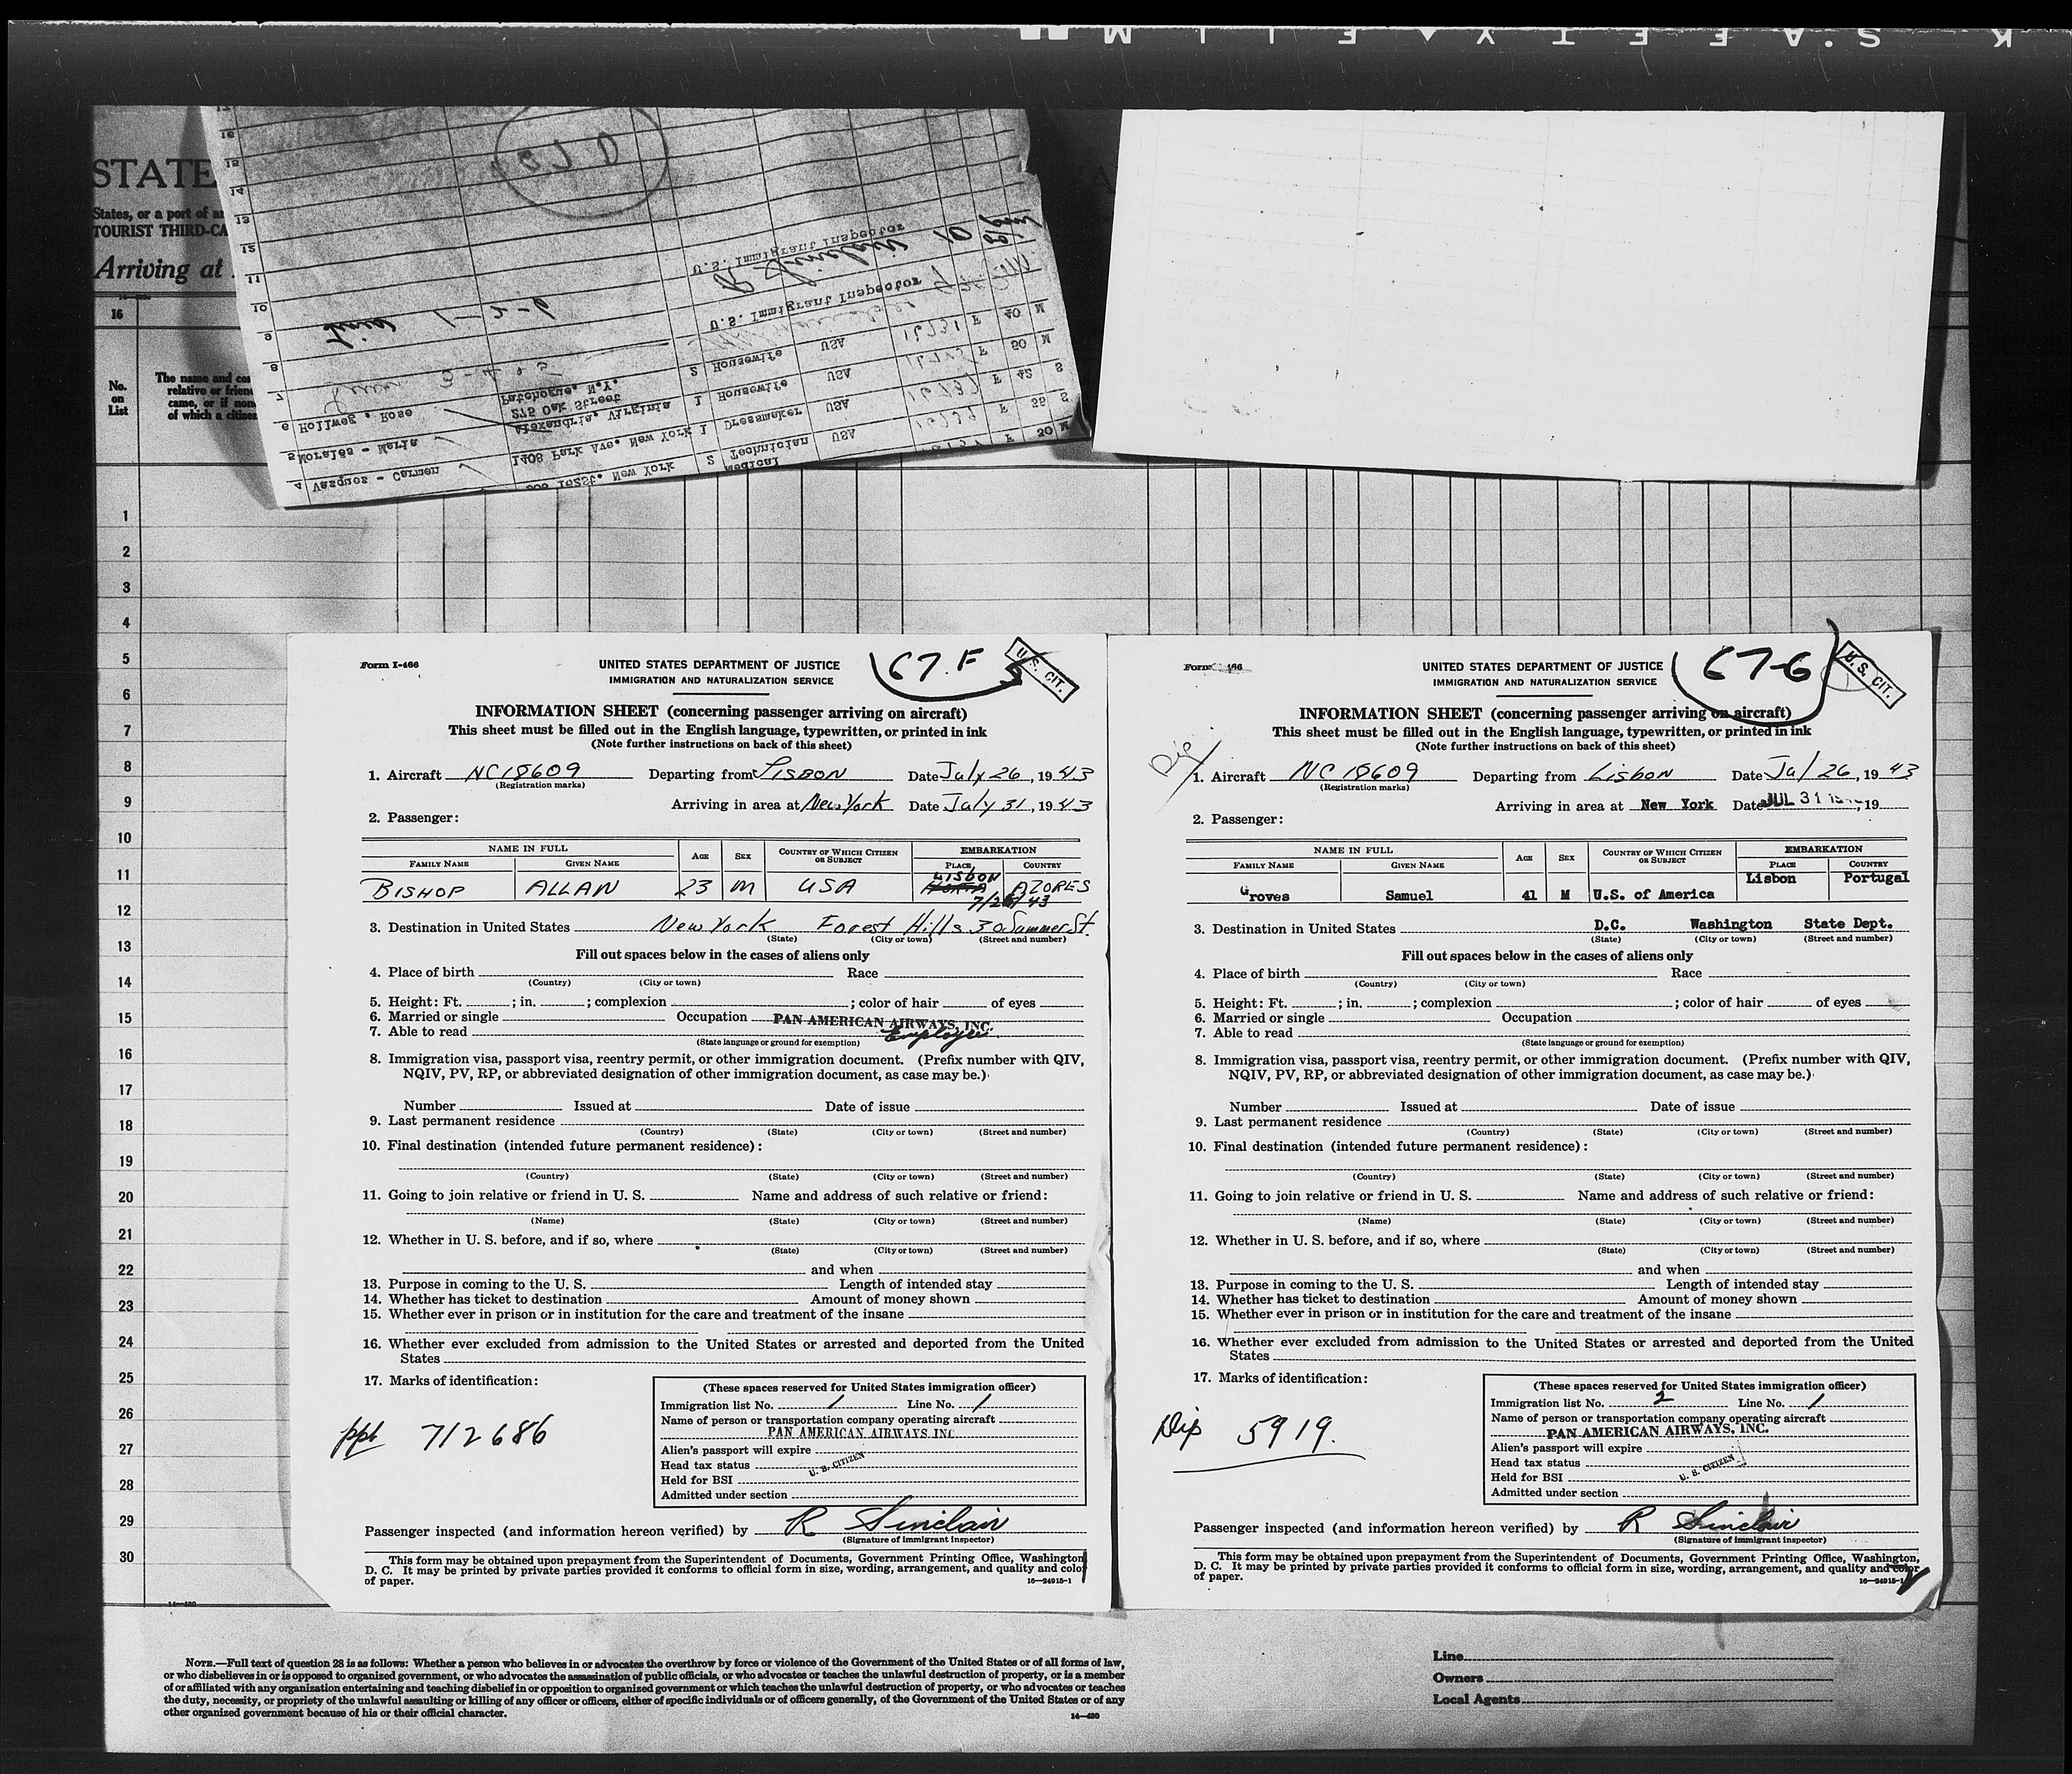 K S.A F E T Y ▲ F I L M
STATE
States, or a port of
TOURIST THIRD-CA
Arriving at
16
No. on List
The name and
relative or frien
came, or if non
of which a citizen
16
15
14
13
12
11
10
9
8
7
U.S. Immigrant Inspector
R Sinclair
U.S. Immigrant Inspector
6 Hollweg, Rose 275 Oak Street Patchogue, N.Y. 2 Housewife USA F 40 M
5 Morales - Maria Alexandria, Virginia 1 Housewife USA F 50 M
4 Vasquos - Carmen 1408 Park Ave. New York 1 Dressmaker USA F 42 S
162St. New York 2 Medical Technician USA F 35 S
1
2
3
4
5
6
7
8
9
10
11
12
13
14
15
16
17
18
19
20
21
22
23
24
25
26
27
28
29
30
Form I-466
UNITED STATES DEPARTMENT OF JUSTICE
IMMIGRATION AND NATURALIZATION SERVICE
67.F
U.S. CIT.
INFORMATION SHEET (concerning passenger arriving on aircraft)
This sheet must be filled out in the English language, typewritten, or printed in ink
(Note further instructions on back of this sheet)
1. Aircraft NC18609 Departing from LISBON Date July 26, 1943
(Registration marks)
Arriving in area at New York Date July 31, 1943
2. Passenger:
NAME IN FULL
FAMILY NAME GIVEN NAME AGE SEX COUNTRY OF WHICH CITIZEN OR SUBJECT EMBARKATION
PLACE COUNTRY
LISBON
BISHOP ALLAN 23 M USA HORTA AZORES
7/26/43
3. Destination in United States New York Forest Hills 30 Summer St.
(State) (City or town) (Street and number)
Fill out spaces below in the cases of aliens only
4. Place of birth Race
(Country) (City or town)
5. Height: Ft. ; in. ; complexion ; color of hair of eyes
6. Married or single Occupation PAN AMERICAN AIRWAYS, INC.
7. Able to read Employee
(State language or ground for exemption)
8. Immigration visa, passport visa, reentry permit, or other immigration document. (Prefix number with QIV,
NQIV, PV, RP, or abbreviated designation of other immigration document, as case may be.)
Number Issued at Date of issue
9. Last permanent residence
(Country) (State) (City or town) (Street and number)
10. Final destination (intended future permanent residence):
(Country) (State) (City or town) (Street and number)
11. Going to join relative or friend in U. S. Name and address of such relative or friend:
(Name) (State) (City or town) (Street and number)
12. Whether in U. S. before, and if so, where
(State) (City or town) (Street and number)
and when
13. Purpose in coming to the U. S. Length of intended stay
14. Whether has ticket to destination Amount of money shown
15. Whether ever in prison or in institution for the care and treatment of the insane
16. Whether ever excluded from admission to the United States or arrested and deported from the United
States
17. Marks of identification:
ppt 712686
(These spaces reserved for United States immigration officer)
Immigration list No. 1 Line No. 1
Name of person or transportation company operating aircraft
PAN AMERICAN AIRWAYS, INC.
Alien's passport will expire
Head tax status U. S. CITIZEN
Held for BSI
Admitted under section
Passenger inspected (and information hereon verified) by R Sinclair
(Signature of immigrant inspector)
This form may be obtained upon prepayment from the Superintendent of Documents, Government Printing Office, Washington
D. C. It may be printed by private parties provided it conforms to official form in size, wording, arrangement, and quality and color
of paper.
16—24915-1
Form 466
UNITED STATES DEPARTMENT OF JUSTICE
IMMIGRATION AND NATURALIZATION SERVICE
67-G
U.S. CIT.
INFORMATION SHEET (concerning passenger arriving on aircraft)
This sheet must be filled out in the English language, typewritten, or printed in ink
(Note further instructions on back of this sheet)
Dip
1. Aircraft NC 18609 Departing from Lisbon Date Jul 26, 1943
(Registration marks)
Arriving in area at New York Date JUL 31, 19
2. Passenger:
NAME IN FULL
FAMILY NAME GIVEN NAME AGE SEX COUNTRY OF WHICH CITIZEN OR SUBJECT EMBARKATION
PLACE COUNTRY
Groves Samuel 41 M U.S. of America Lisbon Portugal
3. Destination in United States D.C. Washington State Dept.
(State) (City or town) (Street and number)
Fill out spaces below in the cases of aliens only
4. Place of birth Race
(Country) (City or town)
5. Height: Ft. ; in. ; complexion ; color of hair of eyes
6. Married or single Occupation
7. Able to read
(State language or ground for exemption)
8. Immigration visa, passport visa, reentry permit, or other immigration document. (Prefix number with QIV,
NQIV, PV, RP, or abbreviated designation of other immigration document, as case may be.)
Number Issued at Date of issue
9. Last permanent residence
(Country) (State) (City or town) (Street and number)
10. Final destination (intended future permanent residence):
(Country) (State) (City or town) (Street and number)
11. Going to join relative or friend in U. S. Name and address of such relative or friend:
(Name) (State) (City or town) (Street and number)
12. Whether in U. S. before, and if so, where
(State) (City or town) (Street and number)
and when
13. Purpose in coming to the U. S. Length of intended stay
14. Whether has ticket to destination Amount of money shown
15. Whether ever in prison or in institution for the care and treatment of the insane
16. Whether ever excluded from admission to the United States or arrested and deported from the United
States
17. Marks of identification:
Dip 5919.
(These spaces reserved for United States immigration officer)
Immigration list No. 2 Line No. 1
Name of person or transportation company operating aircraft
PAN AMERICAN AIRWAYS, INC.
Alien's passport will expire
Head tax status U. S. CITIZEN
Held for BSI
Admitted under section
Passenger inspected (and information hereon verified) by R Sinclair
(Signature of immigrant inspector)
This form may be obtained upon prepayment from the Superintendent of Documents, Government Printing Office, Washington,
D. C. It may be printed by private parties provided it conforms to official form in size, wording, arrangement, and quality and color
of paper.
16—24915-1
14—420
NOTE.—Full text of question 28 is as follows: Whether a person who believes in or advocates the overthrow by force or violence of the Government of the United States or of all forms of law,
or who disbelieves in or is opposed to organized government, or who advocates the assassination of public officials, or who advocates or teaches the unlawful destruction of property, or is a member
of or affiliated with any organization entertaining and teaching disbelief in or opposition to organized government or which teaches the unlawful destruction of property, or who advocates or teaches
the duty, necessity, or propriety of the unlawful assaulting or killing of any officer or officers, either of specific individuals or of officers generally, of the Government of the United States or of any
other organized government because of his or their official character.
14—420
Line
Owners
Local Agents